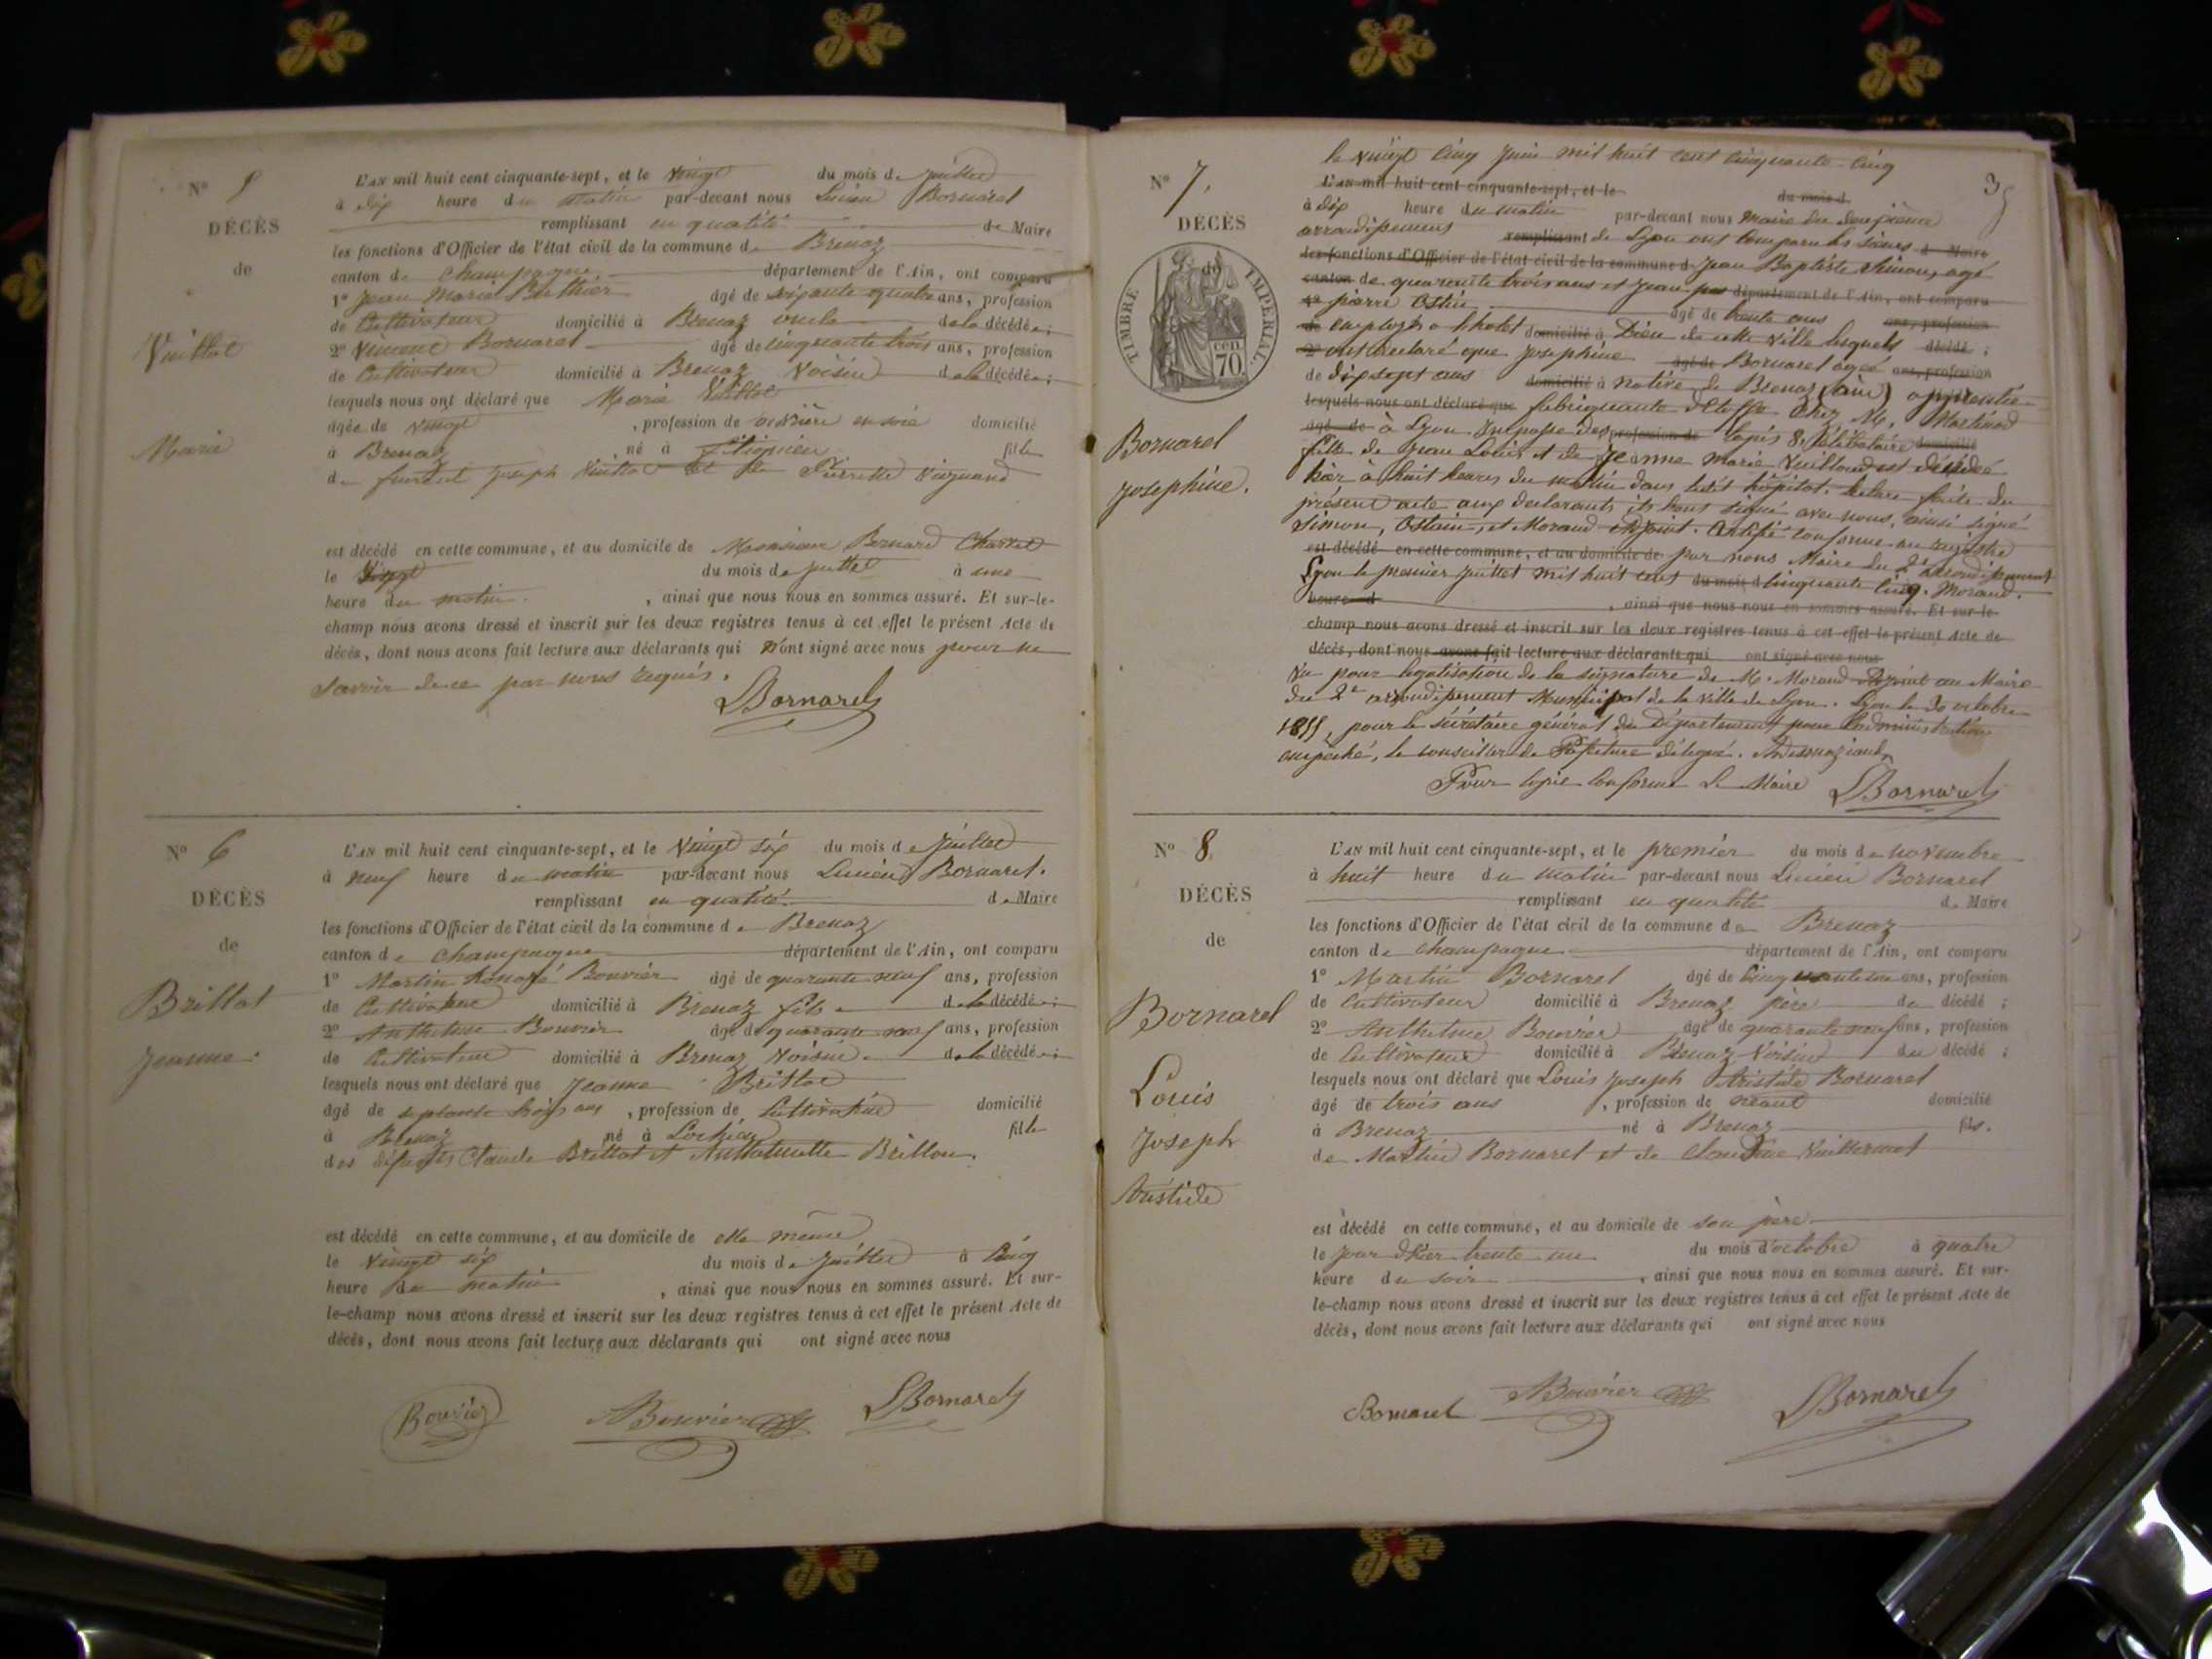 N° 5
DÉCÈS
de
Vuillot
Marie
L'AN mil huit cent cinquante-sept, et le vingt du mois de juillet
à dix heure du matin par-devant nous Lucien Bornarel
remplissant en qualité de Maire
les fonctions d'Officier de l'état civil de la commune de Brenaz
canton de Champagne département de l'Ain, ont comparu
1° Jean Marie Berthier âgé de soixante quatre ans, profession
de Cultivateur domicilié à Brenaz oncle de la décédée;
2° Vincent Bornarel âgé de cinquante trois ans, profession
de Cultivateur domicilié à Brenaz Voisin de la décédée;
lesquels nous ont déclaré que Marie Vuillot
âgée de vingt , profession de ouvrière en soie domicilié
à Brenaz né à fille
de Joseph Vuillot et de Pierrette
est décédé en cette commune, et au domicile de Monsieur Bernard Charvet
le vingt du mois de juillet à une
heure du matin , ainsi que nous nous en sommes assuré. Et sur-le-
champ nous avons dressé et inscrit sur les deux registres tenus à cet effet le présent Acte de
décès, dont nous avons fait lecture aux déclarants qui n'ont signé avec nous pour ne
savoir de ce par nous requis.
LBornarel
N° 6
DÉCÈS
de
Brillat
Jeanne.
L'AN mil huit cent cinquante-sept, et le vingt six du mois de juillet
à neuf heure du matin par-devant nous Lucien Bornarel.
remplissant en qualité de Maire
les fonctions d'Officier de l'état civil de la commune de Brenaz
canton de Champagne département de l'Ain, ont comparu
1° Martin Bouvier âgé de quarante neuf ans, profession
de Cultivateur domicilié à Brenaz fils de la décédée;
2° Anthelme Bouvier âgé de quarante neuf ans, profession
de Cultivateur domicilié à Brenaz Voisin de la décédée;
lesquels nous ont déclaré que Jeanne Brillat
âgé de septante trois ans , profession de Cultivatrice domicilié
à Brenaz né à Lochieu fille
des défunts Claude Brillat et Brillon.
est décédé en cette commune, et au domicile de elle même
le vingt six du mois de juillet à cinq
heure du matin , ainsi que nous nous en sommes assuré. Et sur-
le-champ nous avons dressé et inscrit sur les deux registres tenus à cet effet le présent Acte de
décès, dont nous avons fait lecture aux déclarants qui ont signé avec nous
Bouvier ABouvier LBornarel
N° 7.
DÉCÈS
de
TIMBRE IMPERIAL.
70 cen
Bornarel
Josephine.
le vingt cinq juin mil huit cent cinquante-cinq
L'AN mil huit cent cinquante-sept, et le du mois d
à dix heure du matin par-devant nous Maire du deuxième
arrondissement remplissant de Lyon ont comparu les sieurs d Maire
les fonctions d'Officier de l'état civil de la commune d Jean Baptiste Simon, agé
canton de quarante trois ans et Jean département de l'Ain, ont comparu
1° pierre Ostin âgé de trente ans ans, profession
de employés a l'hotel domicilié à Dieu de cette Ville lesquels décédé ;
2° ont declaré que Josephine âgé de Bornarel agée ans, profession
de dix sept ans domicilié à native de Brenaz (ain) apprentie
lesquels nous ont déclaré que fabriquante d'étoffe chez M. Martinod
âgé de à Lyon profession de 8. Célibataire domicilié
fille de Jean Louis et de Jeanne Marie Vuilloud est décédée
hier à huit heures du matin dans ledit hôpital. lecture faite du
présent acte aux declarants ils l'ont signé avec nous. ainsi signé
Simon, Ostin, et Morand adjoint. Certifié conforme au registre
est décédé en cette commune, et au domicile de par nous Maire du 2e arrondissement
Lyon le premier juillet mil huit cent du mois d cinquante cinq. Morand.
heure d , ainsi que nous nous en sommes assuré. Et sur-le-
champ nous avons dressé et inscrit sur les deux registres tenus à cet effet le présent Acte de
décès, dont nous avons fait lecture aux déclarants qui ont signé avec nous
Vu pour legalisation de la signature de M. Morand adjoint au Maire
du 2e arrondissement Municipal de la ville de Lyon. Lyon le 30 octobre
1855, pour le sécrétaire général du Département pour l'administration
empêché, le conseiller de Préfecture délégué.
Pour copie conforme Le Maire LBornarel
N° 8.
DÉCÈS
de
Bornarel
Louis
Joseph
Aristide
L'AN mil huit cent cinquante-sept, et le premier du mois de novembre
à huit heure du matin par-devant nous Lucien Bornarel
remplissant en qualité de Maire
les fonctions d'Officier de l'état civil de la commune de Brenaz
canton de Champagne département de l'Ain, ont comparu
1° Martin Bornarel âgé de cinquante un ans, profession
de Cultivateur domicilié à Brenaz père du décédé ;
2° Anthelme Bouvier âgé de quarante neuf ans, profession
de Cultivateur domicilié à Brenaz Voisin du décédé ;
lesquels nous ont déclaré que Louis Joseph Aristide Bornarel
âgé de trois ans , profession de néant domicilié
à Brenaz né à Brenaz fils.
de Martin Bornarel et de Claudine Vuillermet
est décédé en cette commune, et au domicile de son père
le jour d'hier trente un du mois d'octobre à quatre
heure du soir , ainsi que nous nous en sommes assuré. Et sur-
le-champ nous avons dressé et inscrit sur les deux registres tenus à cet effet le présent Acte de
décès, dont nous avons fait lecture aux déclarants qui ont signé avec nous
Bornarel ABouvier LBornarel